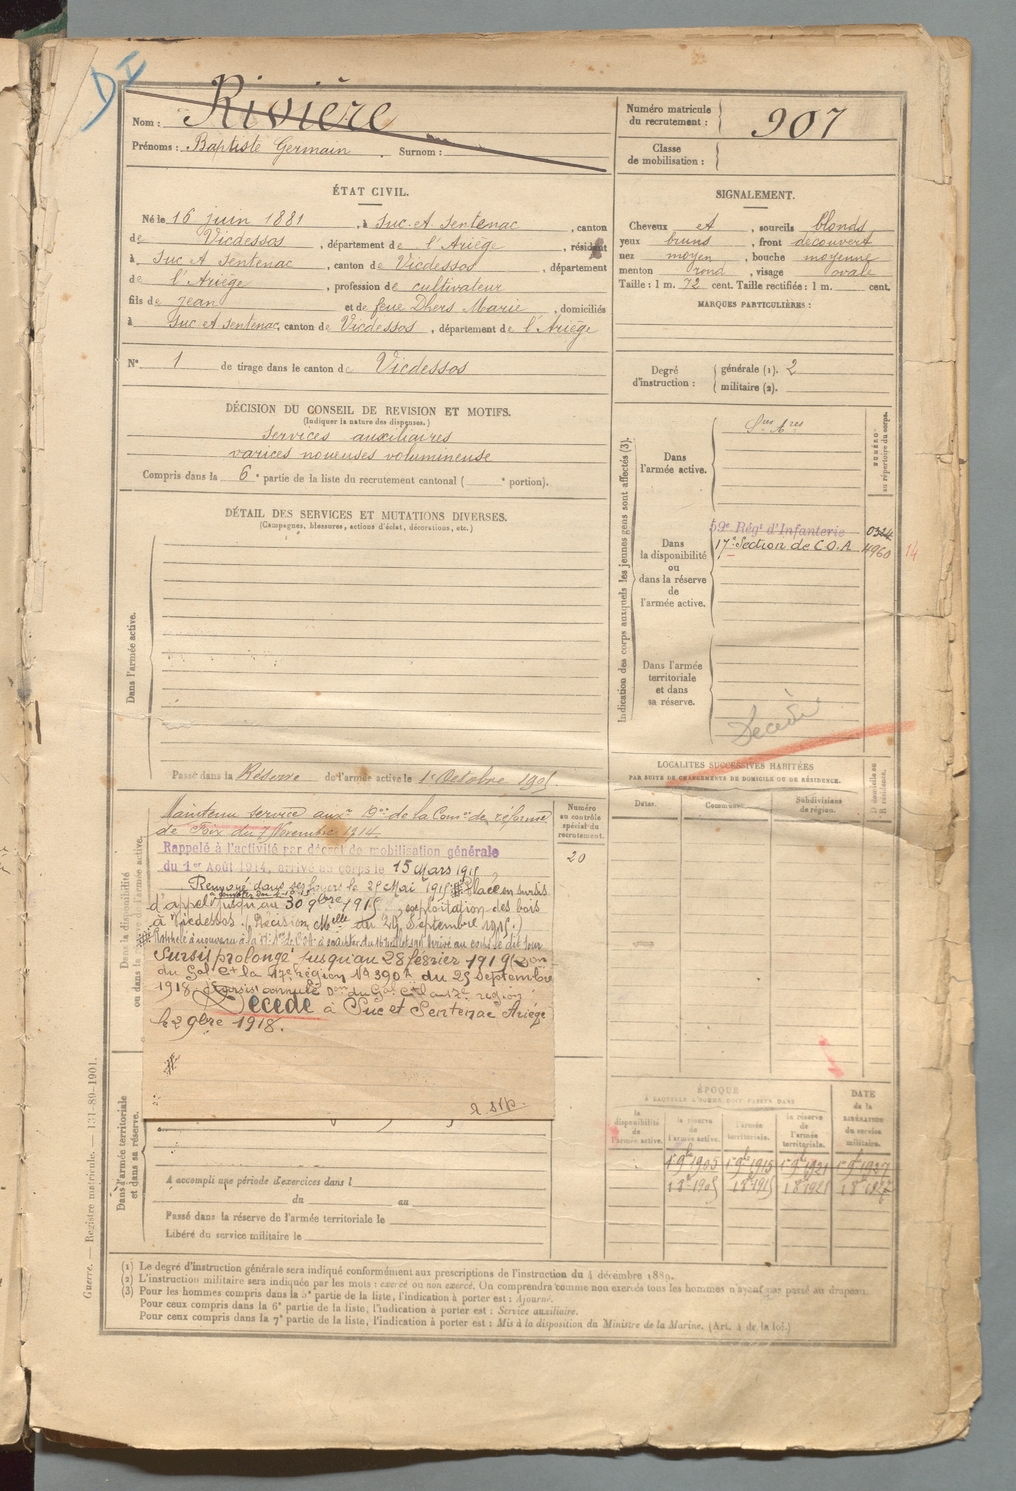 DI
Nom : Rivière
Prénoms : Baptiste Germain Surnom :
Numéro matricule du recrutement : 907
Classe de mobilisation :
ÉTAT CIVIL.
Né le 16 juin 1881, à Suc et Sentenac, canton
de Vicdessos, département de l'Ariège, résidant
à Suc et Sentenac, canton de Vicdessos, département
de l'Ariège, profession de cultivateur
fils de Jean et de feue Dhers Marie, domiciliés
à Suc et Sentenac, canton de Vicdessos, département de l'Ariège
N° 1 de tirage dans le canton de Vicdessos
SIGNALEMENT.
Cheveux et, sourcils blonds
yeux bruns, front découvert
nez moyen, bouche moyenne
menton rond, visage ovale
Taille : 1 m. 72 cent. Taille rectifiée : 1 m. cent.
MARQUES PARTICULIÈRES :
Degré d'instruction : générale (1). 2
militaire (2).
DÉCISION DU CONSEIL DE REVISION ET MOTIFS.
(Indiquer la nature des dispenses.)
Services auxiliaires
varices noueuses volumineuse
Compris dans la 6e partie de la liste du recrutement cantonal ( e portion).
DÉTAIL DES SERVICES ET MUTATIONS DIVERSES.
(Campagnes, blessures, actions d'éclat, décorations, etc.)
Dans l'armée active.
Passé dans la Réserve de l'armée active le 1er Octobre 1905
Indication des corps auxquels les jeunes gens sont affectés (3).
NUMÉRO au répertoire du corps.
Dans l'armée active.
Dans la disponibilité ou dans la réserve de l'armée active.
59e Régt d'Infanterie
17e Section de C.O.A. 4960 14
Dans l'armée territoriale et dans sa réserve.
Décédé
LOCALITÉS SUCCESSIVES HABITÉES
PAR SUITE DE CHANGEMENTS DE DOMICILE OU DE RÉSIDENCE.
Dates.
Communes.
Subdivisions de région.
D domicile ou R résidence.
Dans la disponibilité ou dans la réserve de l'armée active.
Numéro au contrôle spécial du recrutement.
20
Maintenu service auxre Don de la Comon de réforme
de Foix du 7 Novembre 1914
Rappelé à l'activité par décret de mobilisation générale
du 1er Août 1914, arrivé au corps le 15 Mars 1915
Renvoyé dans ses foyers le 25 Mai 1915 Placé en sursis
d'appel jusqu'au 30 9bre 1915, exploitation des bois
à Vicdessos. (Décision Melle du 29 Septembre 1915.)
Sursis prolongé jusqu'au 28 février 1919 (Don
du Gal Ct la 17e région N° 390 du 25 Septembre
1918. Sursis annulé Don du Gal Ct la 17e région
Décédé à Suc et Sentenac Ariège
le 2 9bre 1918.
Dans l'armée territoriale et dans sa réserve.
A accompli une période d'exercices dans l
du au
Passé dans la réserve de l'armée territoriale le
Libéré du service militaire le
ÉPOQUE
À LAQUELLE L'HOMME DOIT PASSER DANS
la disponibilité de l'armée active.
la réserve de l'armée active.
l'armée territoriale.
la réserve de l'armée territoriale.
DATE de la LIBÉRATION du service militaire.
1 9e 1905 1 9e 1915 1 9e 1921 1 9e 1927
1 8e 1905 1 8e 1915 1 8e 1921 1 8e 1927
(1) Le degré d'instruction générale sera indiqué conformément aux prescriptions de l'instruction du 4 décembre 1889.
(2) L'instruction militaire sera indiquée par les mots : exercé ou non exercé. On comprendra comme non exercés tous les hommes n'ayant pas passé au drapeau.
(3) Pour les hommes compris dans la 5e partie de la liste, l'indication à porter est : Ajourné.
Pour ceux compris dans la 6e partie de la liste, l'indication à porter est : Service auxiliaire.
Pour ceux compris dans la 7e partie de la liste, l'indication à porter est : Mis à la disposition du Ministre de la Marine. (Art. 4 de la loi.)
Guerre. — Registre matricule. — 131-89-1901.